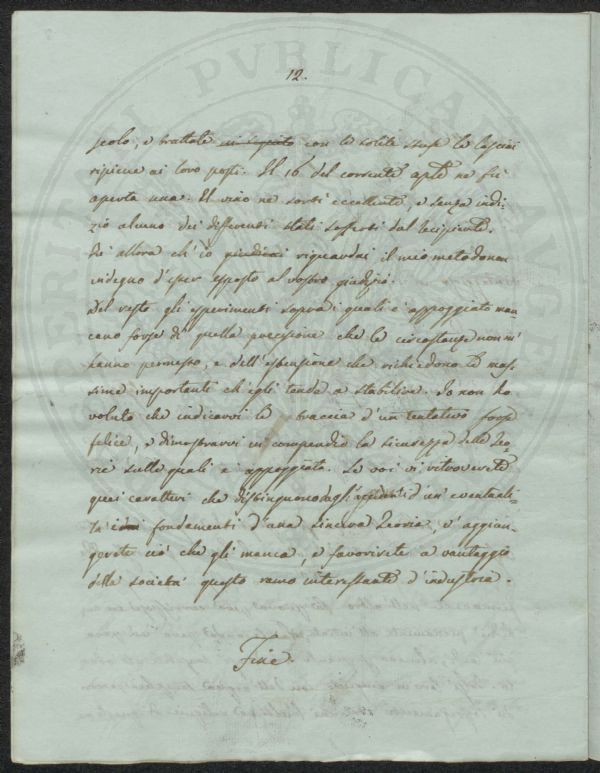 12.
scolo, e trattate in seguito con le solite stufe le lasciai
ripiene ai loro posti. Il 16 del corrente aple ne fù
aperta una. Il vino ne sortì eccellente, e senza indi-
zio alcuno dei differenti stati sofferti dal recipiente.
Fù allora ch'io giudicai riguardai il mio metodo non
indegno d'esser esposto al vostro giudizio.
Del resto gli esperimenti sopra i quali è appoggiato man-
cano forse di quella precisione che le circostanze non m'
hanno permesso, e dell'estensione che richiedono le mas-
sime importanti ch'egli tende a stabilire. Io non ho
voluto che indicarvi le traccia d'un tentativo forse
felice, e dimostrarvi in compendio la sicurezza delle Teo-
rie sulle quali è appoggiata. Se voi vi ritroverete
quei caratteri che distinguono dagli accidenti d'un'eventuali-
tà i fondamenti d'una sincera Teoria, v'aggiun-
gerete ciò che gli manca, e favorirete a vantaggio
della società questo ramo interessante d'industria.
Fine.
VERITATI PUBLICAM AUGET